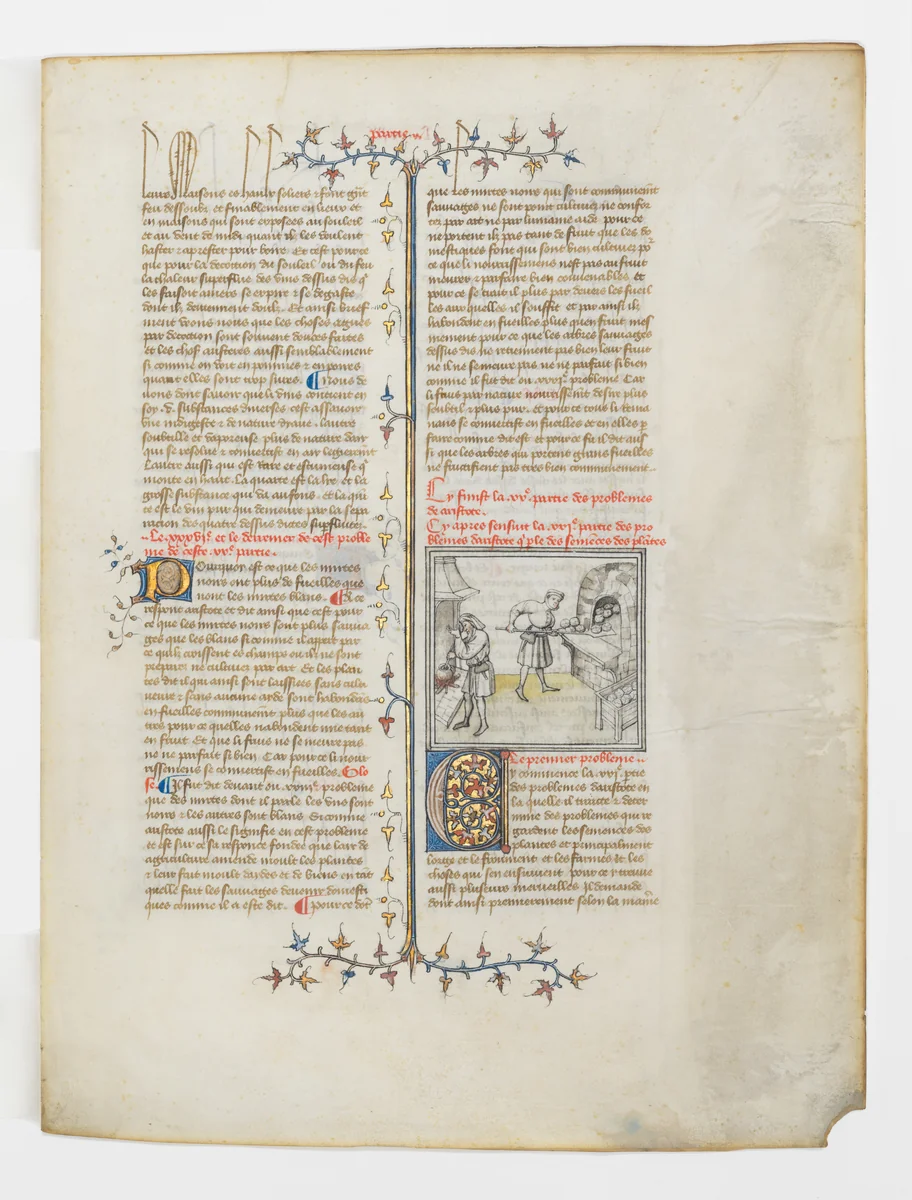 partie
leurs maisons es haulx soliers & font g̃nt
feu dessoubz et finablement en lieux et
en maisons qui sont exposees au souleil
et au vent de midi quant ilz les veulent
haster & aprester pour boire. Et cest pource
que pour la decoction du souleil ou du feu
la chaleur superflue des vins dessus dis q̃
les faisoit amers se expire & se degaste
dont ilz deviennent doulz. Et ainsi brief
ment veons nous que les choses aigues
par decoction sont souvent doulces faites
et les choses austeres aussi semblablement
si comme on voit en pommes & en poires
quant elles sont trop sures. Nous de
vons dont savoir que li vins contient en
soy .v. substances diverses cest assavoir
une indigeste & de nature deaue. lautre
soubtille et vaporeuse plus de nature dair
qui se resolut & convertist en air legierement
Lautre aussi qui est rare et escumeuse q̃
monte en hault. La quarte est la lye et la
grosse substance qui va au fons. et la qui
te est le vin pur qui demeure par la sepa
racion des quatre dessus dictes superfluites.
Le xxxviie. et le derrenier de cest proble
me de ceste xxe. partie.
Pourquoy est ce que les mirtes
noirs ont plus de fueilles que
nont les mirtes blans. A ce
respont aristote et dit ainsi que cest pour
ce que les mirtes noirs sont plus sauva
ges que les blans si comme il appert par
ce quilz croissent es champs ou ilz ne sont
prepares ne cultivez par art. Et les plan
tes dit il qui ainsi sont laissiees sans culti
veure & sans aucune ayde sont habondans
en fueilles communement plus que les au
tres pource quelles nabondent mie tant
en fruit. Et que li fruis ne se meure pas
ne ne parfait si bien. Car pource li nour
rissemens se convertist en fueilles. Glo
se. Il fut dit devant ou xviiie. probleme
que des mirtes dont il parle les uns sont
noirs & les autres sont blans. Et comme
aristote aussi le signifie en cest probleme
et est sur ce sa response fondee que lart de
agriculture amende moult les plantes
& leur fait moult daides et de biens en tãt
quelle fait les sauvages devenir domesti
ques comme il a este dit. Pource dõt
que les mirtes noirs qui sont communemẽt
sauvages ne sont point cultivez ne confor
tez par art ne par humaine aide pource
ne portent ilz pas tant de fruit que les do
mestiques font qui sont bien cultivez po᷑
ce que li nourrissemens nest pas au fruit
meurer & parfaire bien convenables et
pource se trait il plus par devers les fueil
les aux quelles il souffit et par ainsi ilz
habondent en fueilles plus quen fruit. mes
mement pour ce que les arbres sauvages
dessus dis ne retiennent pas bien leur fruit
ne il ne se meure pas ne ne parfait si bien
comme il fut dit ou xviie. probleme Car
li fruis par nature nourrissent desir plus
soubtil & plus pur. et pource tous li dema
nans se convertist en fueilles et en elles p
faire comme dit est et pource fu il dit aus
si que les arbres qui portent grans fueilles
ne fructifient pas tres bien communement.
Cy finist la xxe. partie des problemes
de aristote.
Cy apres sensuit la xxie. partie des pro
blemes daristote q̃ ple des semẽces des plãtes
Le premier probleme.
Cy commence la xxie. ptie
des problemes daristote en
la quelle il traicte & deter
mine des problemes qui re
gardent les semences des
plantes et principalment
lorge et le froument et les farines et les
choses qui sen ensuivent. pour ce y treuve
aussi pluseurs merveilles Il demande
dont ainsi premierement selon la maniẽ